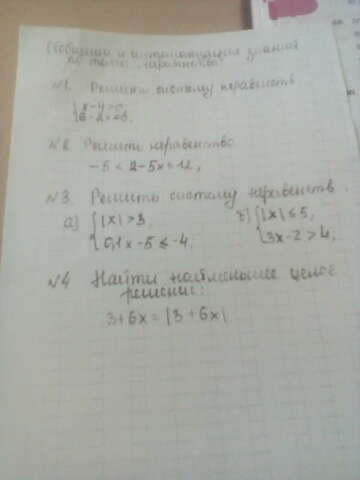 Обобщение и систематизация знаний
по теме: неравенства
№1. Решить систему неравенств
{x-4>0,
6-2x<0.
№2 Решить неравенство
-5 < 2-5x<12,
№3. Решить систему неравенств.
а) {|x|>3, б) {|x|≤5,
0,1x-5≤-4, 3x-2>4,
№4 Найти наименьшее целое
решение:
3+6x=|3+6x|